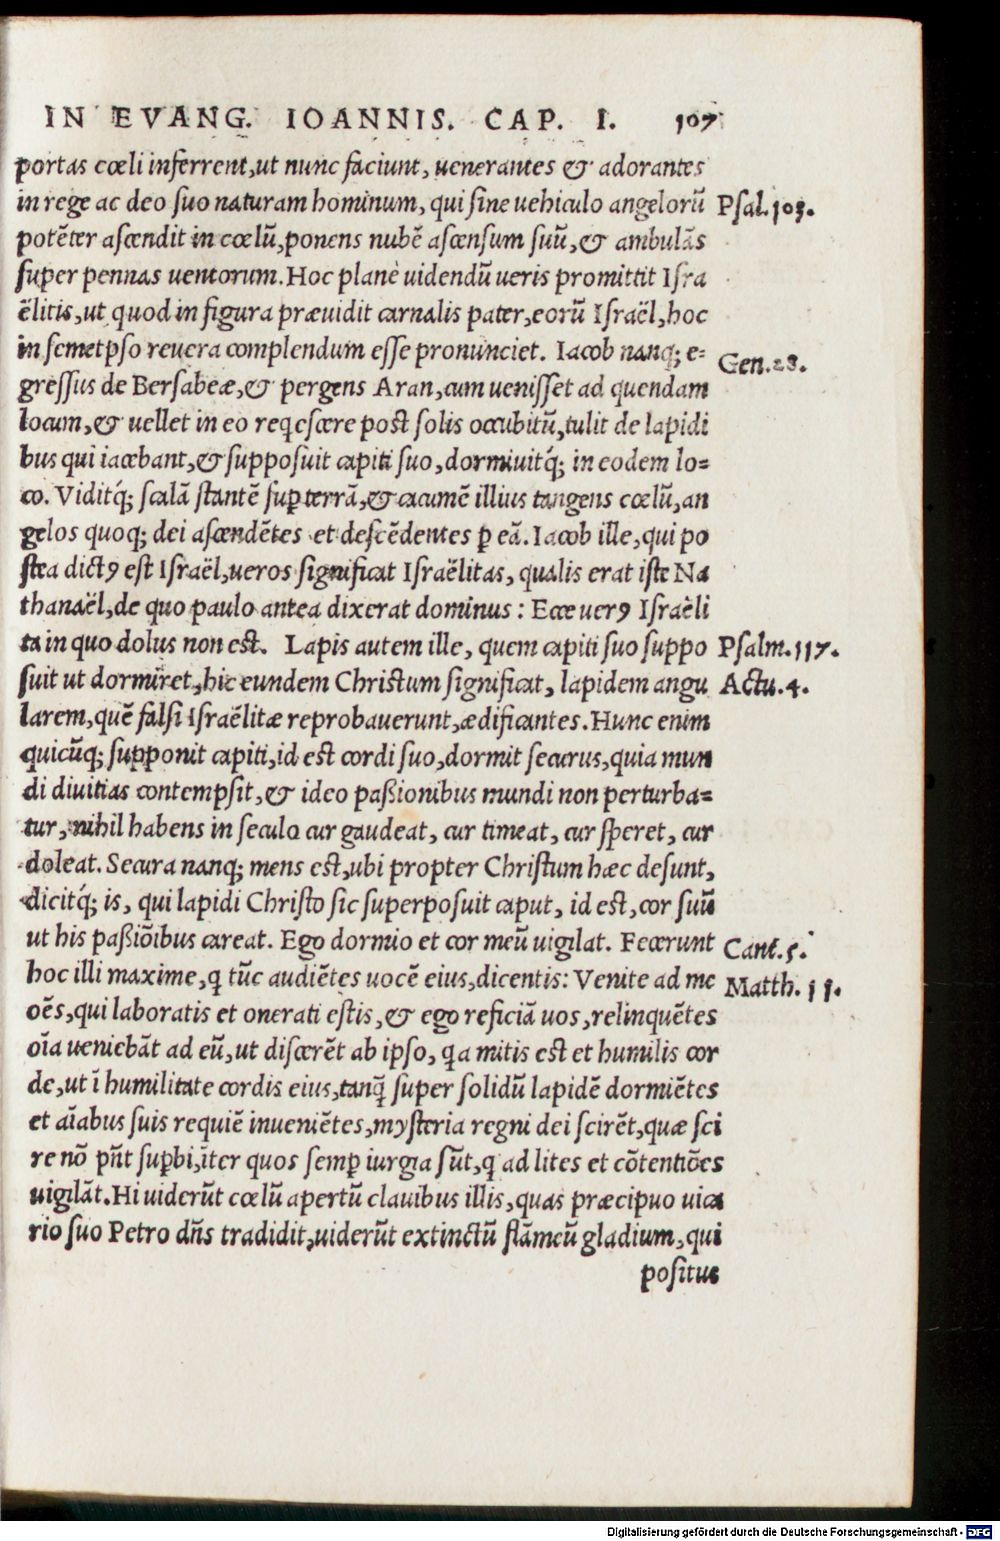 IN EVANG. IOANNIS. CAP. I. 107
portas cœli inferrent, ut nunc faciunt, uenerantes & adorantes
in rege ac deo suo naturam hominum, qui sine uehiculo angelorũ Psal. 103.
potẽter ascendit in cœlũ, ponens nubẽ ascensum suũ, & ambulãs
super pennas uentorum. Hoc planè uidendũ ueris promittit Isra
ëlitis, ut quod in figura præuidit carnalis pater, eorũ Israël, hoc
in semetpso reuera complendum esse pronunciet. Iacob nanq; e= Gen. 28.
gressus de Bersabeæ, & pergens Aran, cum uenisset ad quendam
locum, & uellet in eo reqescere post solis occubitũ, tulit de lapidi
bus qui iacebant, & supposuit capiti suo, dormiuitq́; in eodem lo=
co. Viditq́; scalã stantẽ suꝑ terrã, & cacumẽ illius tangens cœlũ, an
gelos quoq; dei ascendẽtes et descẽdentes ꝑ eã. Iacob ille, qui po
stea dictꝰ est Israël, ueros significat Israëlitas, qualis erat iste Na
thanaël, de quo paulo antea dixerat dominus: Ecce uerꝰ Israëli
ta in quo dolus non est. Lapis autem ille, quem capiti suo suppo Psalm. 117.
suit ut dormiret, hic eundem Christum significat, lapidem angu Actu. 4.
larem, quẽ falsi Israëlitæ reprobauerunt, ædificantes. Hunc enim
quicũq; supponit capiti, id est cordi suo, dormit securus, quia mun
di diuitias contempsit, & ideo paßionibus mundi non perturba=
tur, nihil habens in seculo cur gaudeat, cur timeat, cur speret, cur
doleat. Secura nanq; mens est, ubi propter Christum hæc desunt,
dicitq́; is, qui lapidi Christo sic superposuit caput, id est, cor suũ
ut his paßiõibus careat. Ego dormio et cor meũ uigilat. Fecerunt Cant. 5.
hoc illi maxime, q̃ tũc audiẽtes uocẽ eius, dicentis: Venite ad me Matth. 11.
oẽs, qui laboratis et onerati estis, & ego reficiã uos, relinquẽtes
oĩa ueniebãt ad eũ, ut discerẽt ab ipso, qa mitis est et humilis cor
de, ut ĩ humilitate cordis eius, tanq̃ super solidũ lapidẽ dormiẽtes
et aĩabus suis requiẽ inueniẽtes, mysteria regni dei scirẽt, quæ sci
re nõ pñt suꝑbi, ĩter quos semꝑ iurgia sũt, q̃ ad lites et cõtentiões
uigilãt. Hi uiderũt cœlũ apertũ clauibus illis, quas præcipuo uica
rio suo Petro dñs tradidit, uiderũt extinctũ flãmeũ gladium, qui
positus
Digitalisierung gefördert durch die Deutsche Forschungsgemeinschaft - DFG